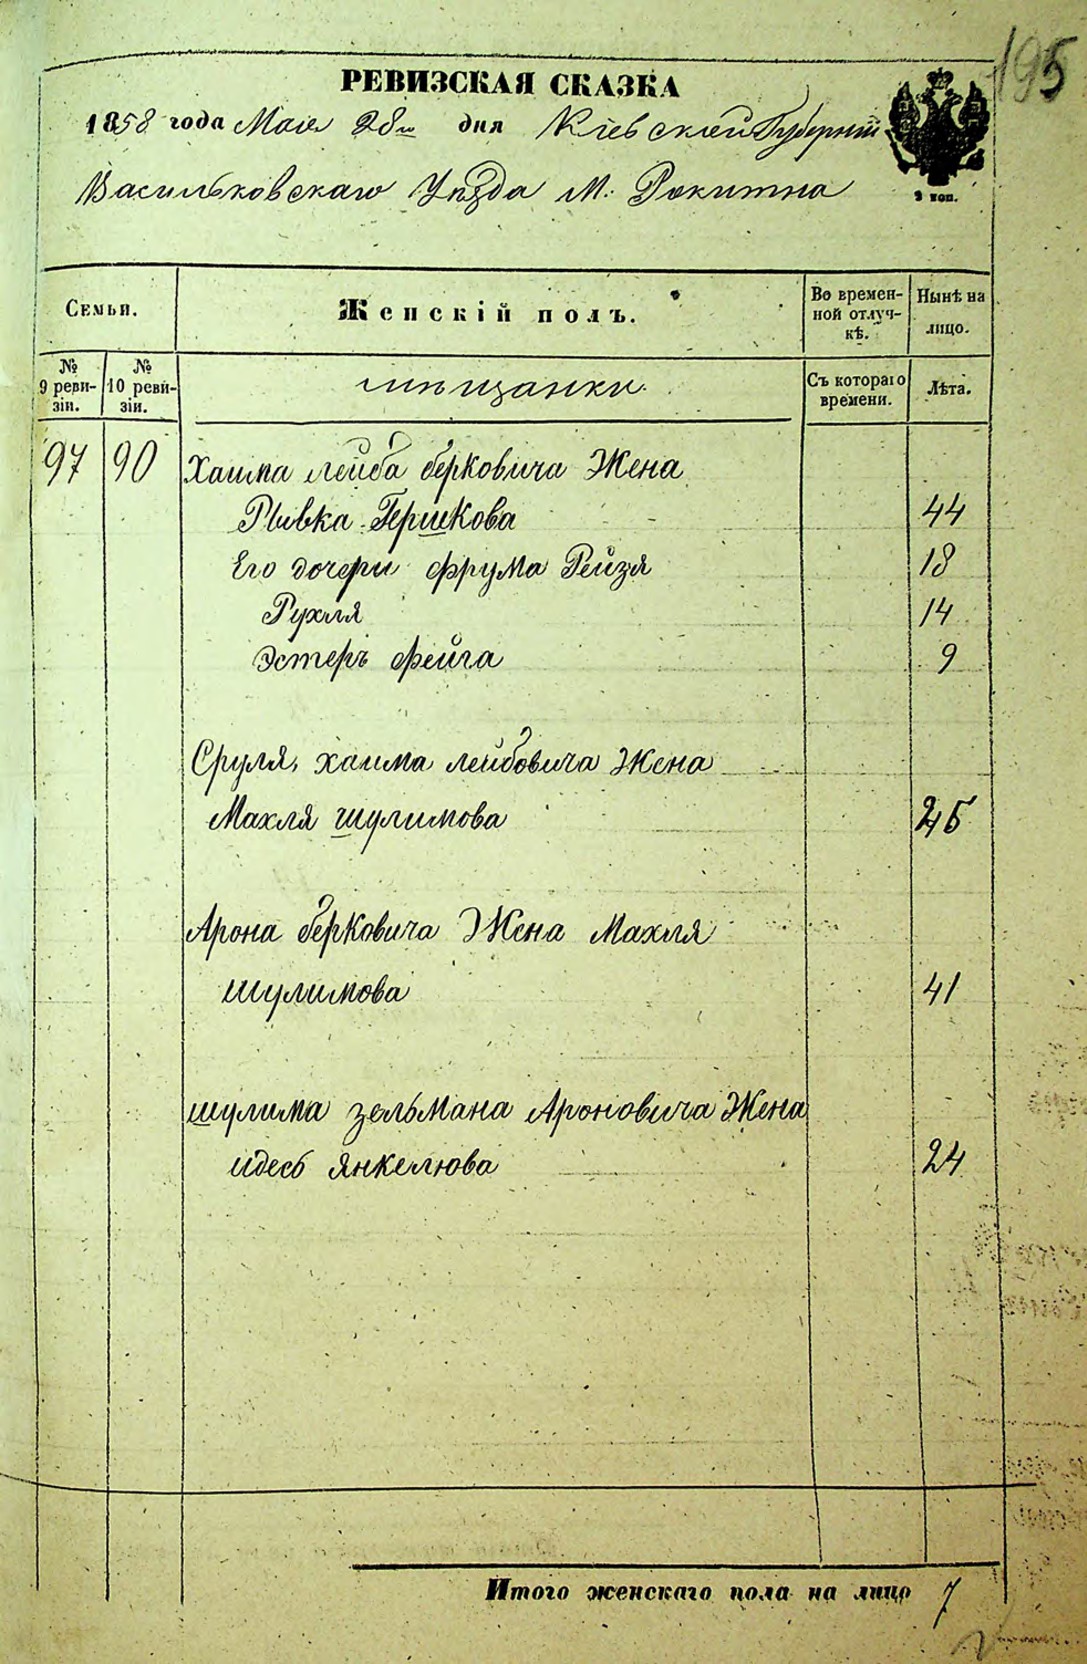 195
РЕВИЗСКАЯ СКАЗКА
1858 года Мая 28го дня Кіевской Губерніи
Васильковскаго Уѣзда М. Рокитна
2 коп.
Семьи.
Женскій полъ.
Во времен-
ной отлуч-
кѣ.
Нынѣ на
лицо.
№
9 реви-
зіи.
№
10 реви-
зіи.
мѣщанки
Съ котораго
времени.
Лѣта.
97 90 Хаима Лейба Берковича Жена
Рывка Гершкова 44
Его дочери Фрума Рейзя 18
Рухля 14
Эстеръ Фейга 9
Сруля Хаима Лейбовича Жена
Махля Шулимова 25
Арона Берковича Жена Махля
Шулимова 41
Шулима Зельмана Ароновича Жена
Идесь Янкелюва 24
Итого женскаго пола на лицо 7